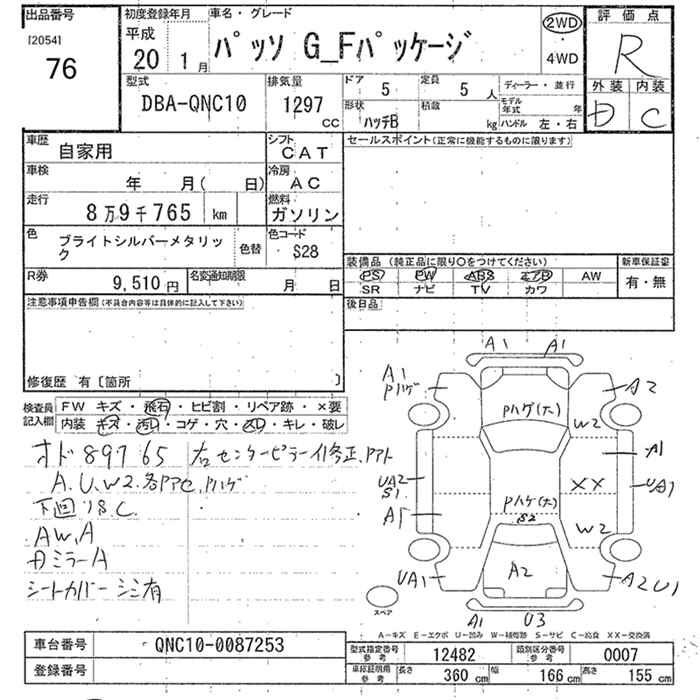 出品番号 初度登録年月 車名・グレード 2WD 評価点
[2054] 平成
76 20 1月 パッソ G_Fパッケージ 4WD R
型式 排気量 ドア 5 定員 5人 ディーラー・並行 外装 内装
DBA-QNC10 1297 CC 形状 ハッチB 積載 kg モデル年式 年 D C
ハンドル 左・右
車歴 自家用 シフト CAT セールスポイント(正常に機能するものに限ります)
車検 年 月( 日) 冷房 AC
走行 8万9千765 km 燃料 ガソリン
色 ブライトシルバーメタリック 色替 色コード S28
装備品 (純正品に限り○をつけてください) 新車保証書
R券 9,510円 名変通知期限 月 日 PS PW ABS エアB AW 有・無
SR ナビ TV カワ
注意事項申告欄(不具合内容等は具体的に記入して下さい) 後日品
修復歴 有〔箇所 〕
検査員記入欄 FW キズ・飛石・ヒビ割・リペア跡・×要
内装 キズ・汚レ・コゲ・穴・スレ・キレ・破レ
オド 89765 右センターピラーイ修正、アト
A.U.W2.各アアセ、Pハゲ
下回りS.C
AW,A
Dミラー A
シートカバー シミ有
A1 A1
A1 Pハゲ A2
Pハゲ(大) W2
A1
UA2 S1 XX UA1
A1 Pハゲ(大)
S2 W2
UA1 A2 A2 U1
スペア
A1 U3
A-キズ E-エクボ U-凹み W-補修跡 S-サビ C-腐食 XX-交換済
車台番号 QNC10-0087253 型式指定番号 参考 12482 類別区分番号 参考 0007
登録番号 車検証明用 参考 長さ 360 cm 幅 166 cm 高さ 155 cm